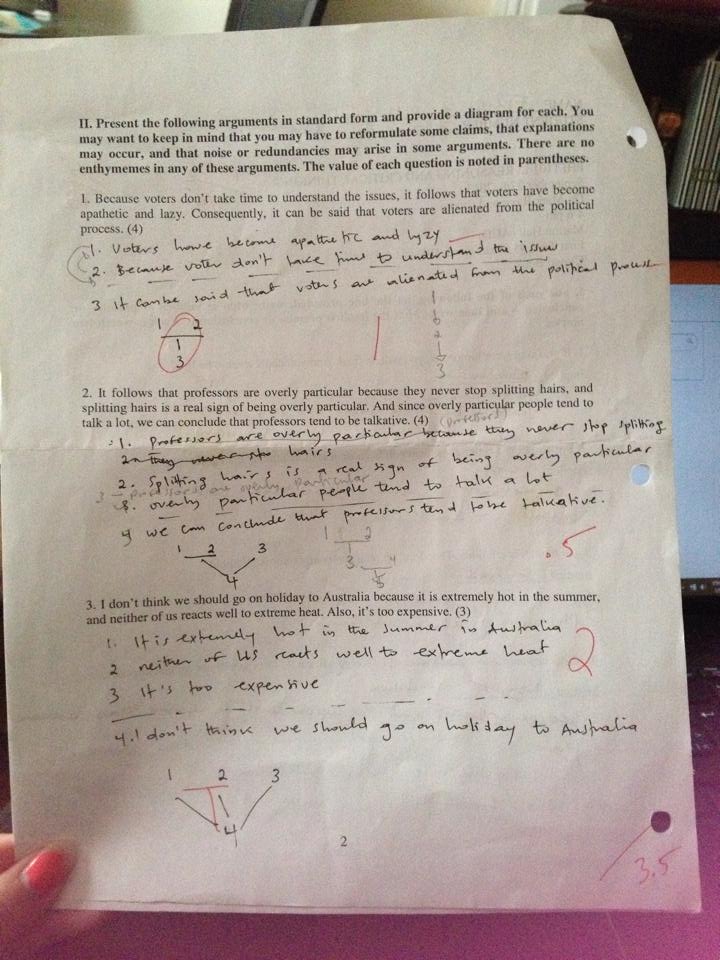 II. Present the following arguments in standard form and provide a diagram for each. You
may want to keep in mind that you may have to reformulate some claims, that explanations
may occur, and that noise or redundancies may arise in some arguments. There are no
enthymemes in any of these arguments. The value of each question is noted in parentheses.
1. Because voters don't take time to understand the issues, it follows that voters have become
apathetic and lazy. Consequently, it can be said that voters are alienated from the political
process. (4)
1. Voters have become apathetic and lazy
2. Because voter don't take time to understand the issue
3 It can be said that voters are alienated from the political process
1 2
1
3
1
1
2
3
2. It follows that professors are overly particular because they never stop splitting hairs, and
splitting hairs is a real sign of being overly particular. And since overly particular people tend to
talk a lot, we can conclude that professors tend to be talkative. (4)
(professors)
1. Professors are overly particular because they never stop splitting
hairs
2. Splitting hairs is a real sign of being overly particular
3 - professors are overly particular
3. overly particular people tend to talk a lot
4 we can conclude that professors tend to be talkative.
1 2 3
4
1 2
3 4
5
.5
3. I don't think we should go on holiday to Australia because it is extremely hot in the summer,
and neither of us reacts well to extreme heat. Also, it's too expensive. (3)
1. It is extremely hot in the summer in Australia
2 neither of us reacts well to extreme heat
3 It's too expensive
2
4. I don't think we should go on holiday to Australia
1 2 3
4
2
3.5